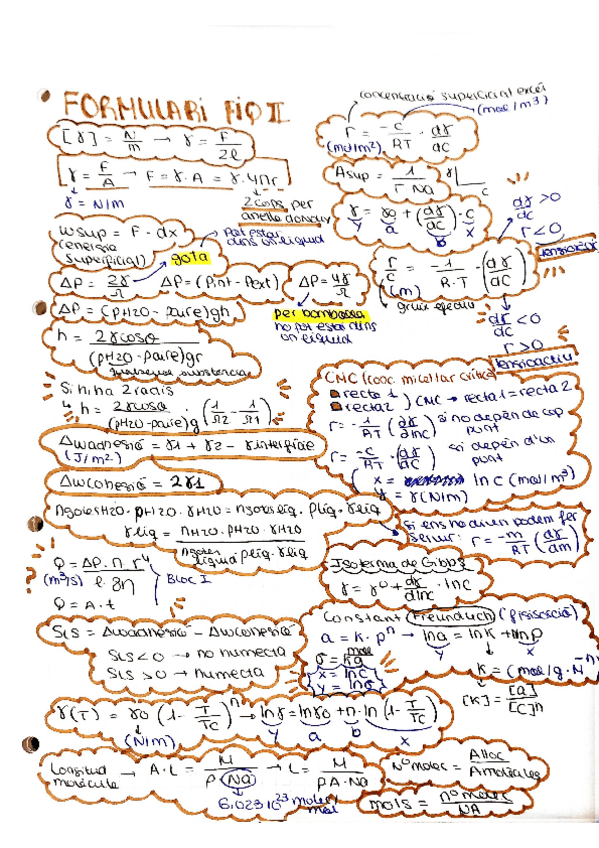 FORMULARI FIQ II
[γ] = N/m → γ = F/2l
γ = F/A → F = γ · A = γ · 4πr
γ = N/m
2 cops, per
Wsup = F · dx
(energia
superficial)
pot estar
dins un líquid
gota
ΔP = 2γ/r
ΔP = (Pint - Pext)
ΔP = 4γ/r
ΔP = (ρH2O - ρaire)gh
per bombolla
no pot estar dins
un líquid
h = 2γcosθ/(ρH2O - ρaire)gr
Si hi ha 2 radis
↳ h = 2γcosθ/(ρH2O - ρaire)g · (1/r2 - 1/r1)
ΔWadhesió = γ1 + γ2 - γinterfície
(J/m²)
ΔWcohesió = 2γ1
ngotesH2O · ρH2O · γH2O = ngotes líq. · ρlíq · γlíq
Q = ΔP · π · r⁴/l · 8η
(m³/s)
Bloc I
Q = A · t
SLS = ΔWadhesió - ΔWcohesió
SLS < 0 → no humecta
SLS > 0 → humecta
γ(T) = γ0 (1 - T/Tc)ⁿ → lnγ = lnγ0 + n · ln(1 - T/Tc)
y a b x
(N/m)
Longitud
molècula
→ A · L = M/ρ(Na) → L = M/ρA · Na
6.023·10²³
concentració superficial excés
(mol/m³)
Γ = -c/RT · dγ/dC
(mol/m²)
Asup = 1/Γ · Na
γ
c
γ = γ0 + (dγ/dC) · C
y a b x
dγ/dc > 0
Γ < 0
Γ/C = -1/R·T · (dγ/dC)
(m)
gruix efectiu
dγ/dC < 0
Γ > 0
tensioactiu
CMC (conc. micel·lar crítica)
recta 1
recta 2
CMC → recta 1 = recta 2
Γ = -1/RT (dγ/dlnC) si no depèn de cap
punt
Γ = -C/RT · (dγ/dC) si depèn d'un
punt
x = ln C (mol/m³)
y = γ (N/m)
si ens ho diuen podem fer
servir: Γ = -m/RT (dγ/dm)
Isoterma de Gibbs
γ = γ⁰ + dγ/dlnc · lnC
Constant Freundlich (fisisorció)
a = K · pⁿ → lna = lnK + nlnp
y x
x = lnC
y = lna
[K] = [a]/[C]ⁿ
Nº molec = Alloc/Amolècules
mols = nº molec/NA